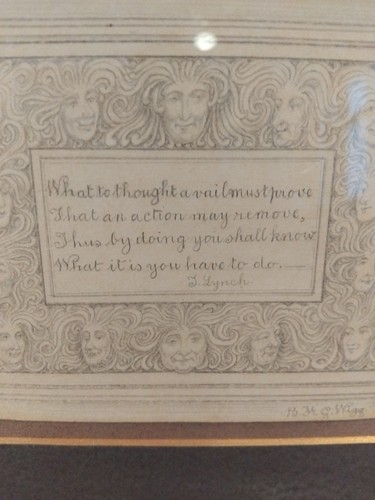 What to thought a vail must prove
That an action may remove,
Thus by doing you shall know
What it is you have to do.—
T. Lynch.
B. H. G. Wigg